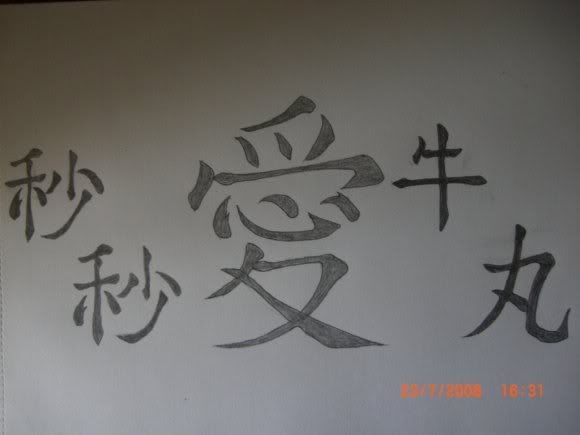 秒秒
愛
牛丸
23/7/2008 16:31